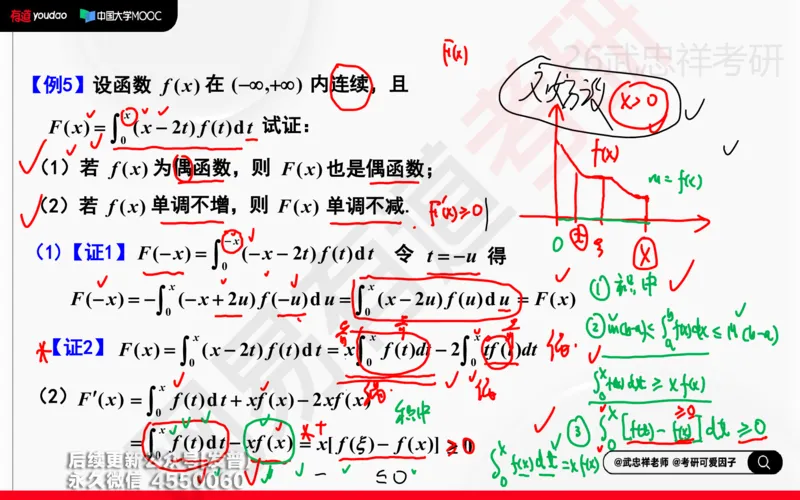 有道 youdao 中国大学MOOC
26武忠祥考研
【例5】设函数 f(x) 在 (−∞,+∞) 内连续，且
F(x) = ∫₀ˣ (x − 2t) f(t)dt 试证：
（1）若 f(x) 为偶函数，则 F(x) 也是偶函数；
（2）若 f(x) 单调不增，则 F(x) 单调不减.
F'(x) ≥ 0
F(x)
不妨设 x>0
f(x)
m = f(x)
0 ξ x
（1）【证1】 F(−x) = ∫₀⁻ˣ (−x − 2t) f(t)dt 令 t = −u 得
F(−x) = −∫₀ˣ (−x + 2u) f(−u)du = ∫₀ˣ (x − 2u) f(u)du = F(x)
【证2】 F(x) = ∫₀ˣ (x − 2t) f(t)dt = x∫₀ˣ f(t)dt − 2∫₀ˣ tf(t)dt
（2） F′(x) = ∫₀ˣ f(t)dt + xf(x) − 2xf(x)
= ∫₀ˣ f(t)dt − xf(x) = x[f(ξ) − f(x)] ≥ 0
积中
+
− ≤0
① 积中
② m(b-a) ≤ ∫ₐᵇ f(x)dx ≤ M(b-a)
∫₀ˣ f(t)dt ≥ x f(x)
③ ∫₀ˣ [f(t) − f(x)] dt ≥ 0
≥0
∫₀ˣ f(x)dt = x f(x)
@武忠祥老师 @考研可爱因子
永久微信 4550060